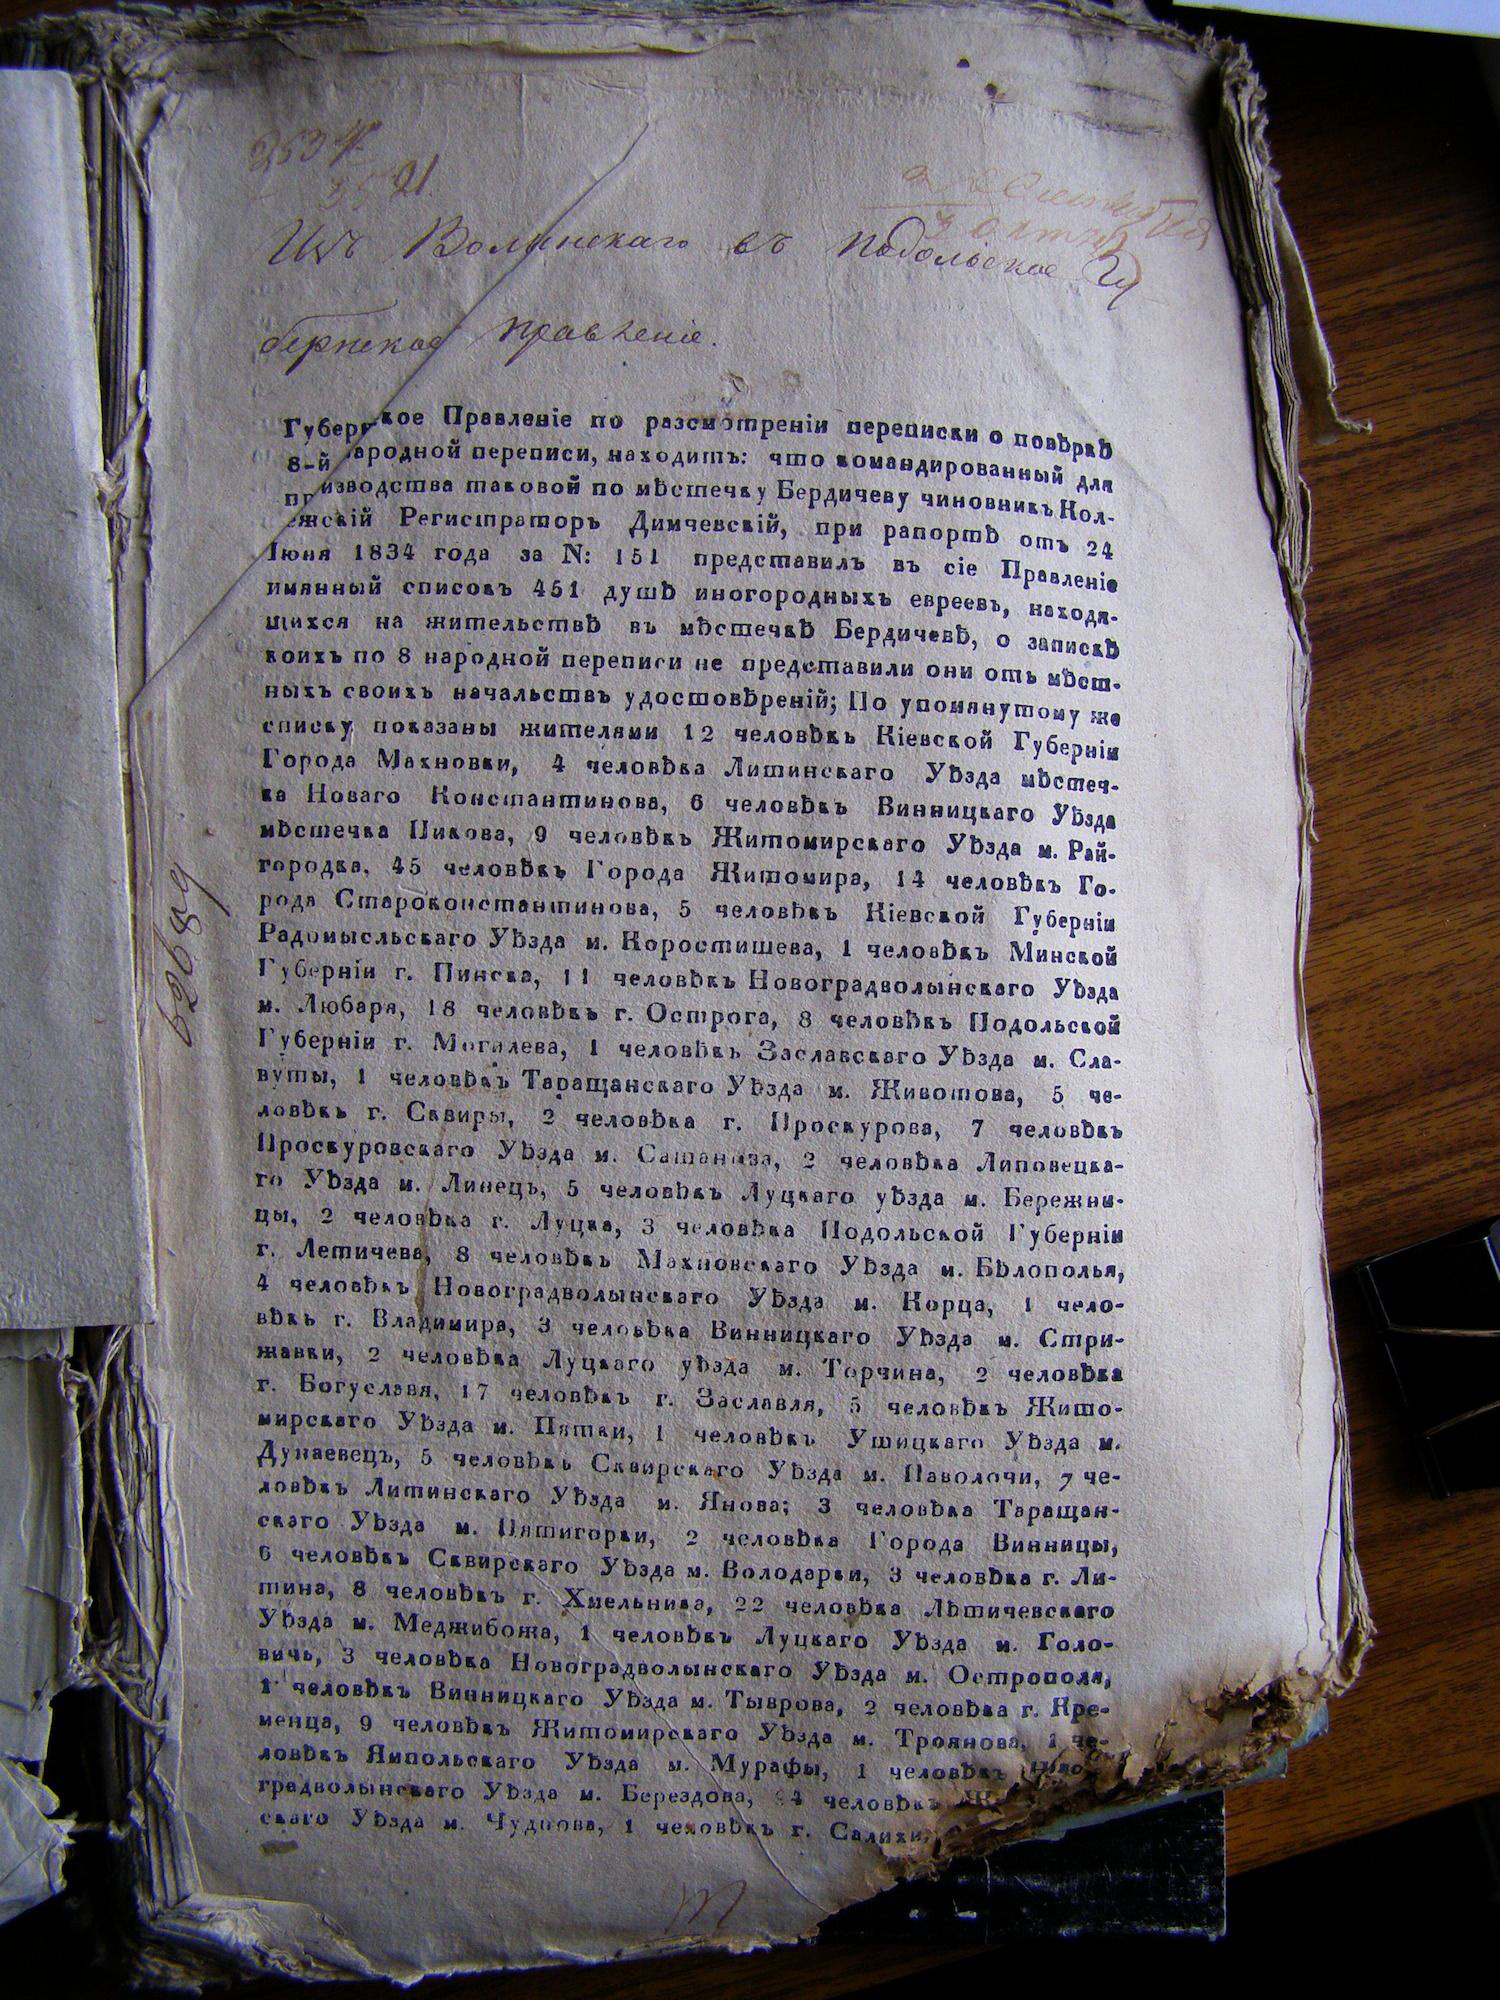 2534
3521.
Изъ Волынскаго въ Подольское Гу
бернское Правленіе.
Губернское Правленіе по разсмотреніи переписки о повѣркѣ
8-й народной переписи, находитъ: что командированный для
производства таковой по мѣстечку Бердичеву чиновникъ Кол-
ежскій Регистраторъ Димчевскій, при рапортѣ отъ 24
Іюня 1834 года за N: 151 представилъ въ сіе Правленіе
имянный списокъ 451 душѣ иногородныхъ евреевъ, находя-
щихся на жительствѣ въ мѣстечкѣ Бердичевѣ, о запискѣ
коихъ по 8 народной переписи не представили они отъ мѣст-
ныхъ своихъ начальствъ удостовѣреній; По упомянутому же
списку показаны жителями 12 человѣкъ Кіевской Губерніи
Города Махновки, 4 человѣка Литинскаго Уѣзда мѣстеч-
ка Новаго Константинова, 6 человѣкъ Винницкаго Уѣзда
мѣстечка Пикова, 9 человѣкъ Житомирскаго Уѣзда м. Рай-
городка, 45 человѣкъ Города Житомира, 14 человѣкъ Го-
рода Староконстантинова, 5 человѣкъ Кіевской Губерніи
Радомысльскаго Уѣзда м. Коростишева, 1 человѣкъ Минской
Губерніи г. Пинска, 11 человѣкъ Новоградволынскаго Уѣзда
м. Любаря, 18 человѣкъ г. Острога, 8 человѣкъ Подольской
Губерніи г. Могилева, 1 человѣкъ Заславскаго Уѣзда м. Сла-
вуты, 1 человѣкъ Таращанскаго Уѣзда м. Животова, 5 че-
ловѣкъ г. Сквиры, 2 человѣка г. Проскурова, 7 человѣкъ
Проскуровскаго Уѣзда м. Сатанова, 2 человѣка Липовецка-
го Уѣзда м. Линецъ, 5 человѣкъ Луцкаго уѣзда м. Бережни-
цы, 2 человѣка г. Луцка, 3 человѣка Подольской Губерніи
г. Летичева, 8 человѣкъ Махновскаго Уѣзда м. Бѣлополья,
4 человѣкъ Новоградволынскаго Уѣзда м. Корца, 1 чело-
вѣкъ г. Владимира, 3 человѣка Винницкаго Уѣзда м. Стри-
жавки, 2 человѣка Луцкаго уѣзда м. Торчина, 2 человѣка
г. Богуславя, 17 человѣкъ г. Заславля, 5 человѣкъ Жито-
мирскаго Уѣзда м. Пятки, 1 человѣкъ Ушицкаго Уѣзда м.
Дунаевецъ, 5 человѣкъ Сквирскаго Уѣзда м. Паволочи, 7 че-
ловѣкъ Литинскаго Уѣзда м. Янова; 3 человѣка Таращан-
скаго Уѣзда м. Пятигорки, 2 человѣка Города Винницы,
6 человѣкъ Сквирскаго Уѣзда м. Володарки, 3 человѣка г. Ли-
тина, 8 человѣкъ г. Хмельника, 22 человѣка Лѣтичевскаго
Уѣзда м. Меджибожа, 1 человѣкъ Луцкаго Уѣзда м. Голо-
вичь, 3 человѣка Новоградволынскаго Уѣзда м. Острополя,
1 человѣкъ Винницкаго Уѣзда м. Тыврова, 2 человѣка г. Кре-
менца, 9 человѣкъ Житомирскаго Уѣзда м. Троянова, 1 че-
ловѣкъ Ямпольскаго Уѣзда м. Мурафы, 1 человѣкъ
градволынскаго Уѣзда м. Берездова, человѣкъ
скаго Уѣзда м. Чуднова, 1 человѣкъ г. Салихи,